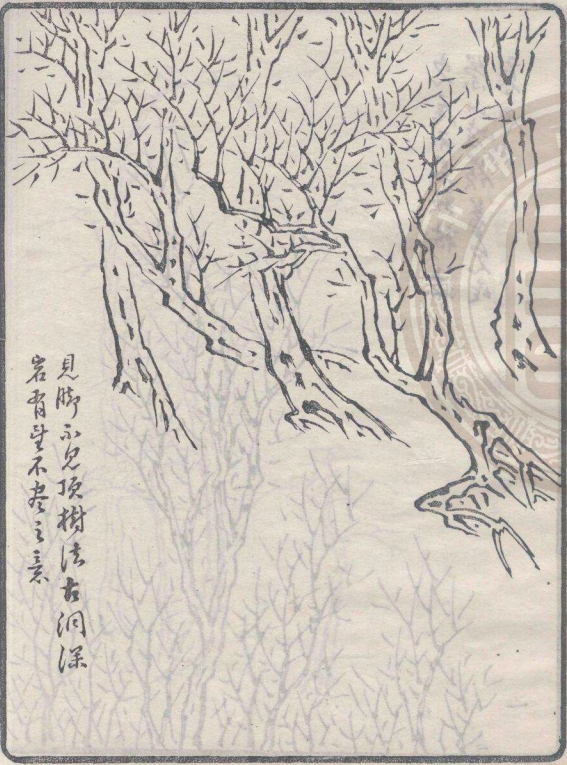 見脚不見頂樹法古洞深
岩有望不盡之意